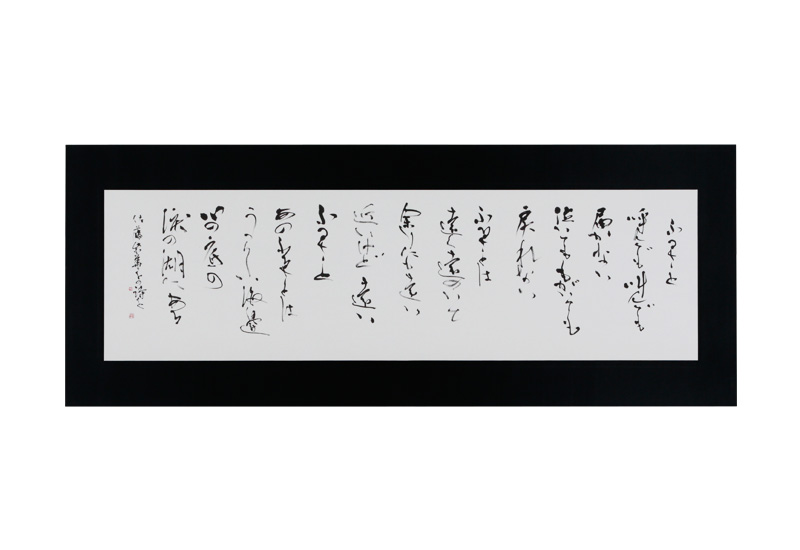 ふるさと
呼んでも叫んでも
届かない
泣いてももがいても
戻れない
ふるさとは
遠く遠のいて
余りにも
近いけど遠い
ふるさと
あのふるさとは
うつくしい海辺
心の底の
涙の湖にある